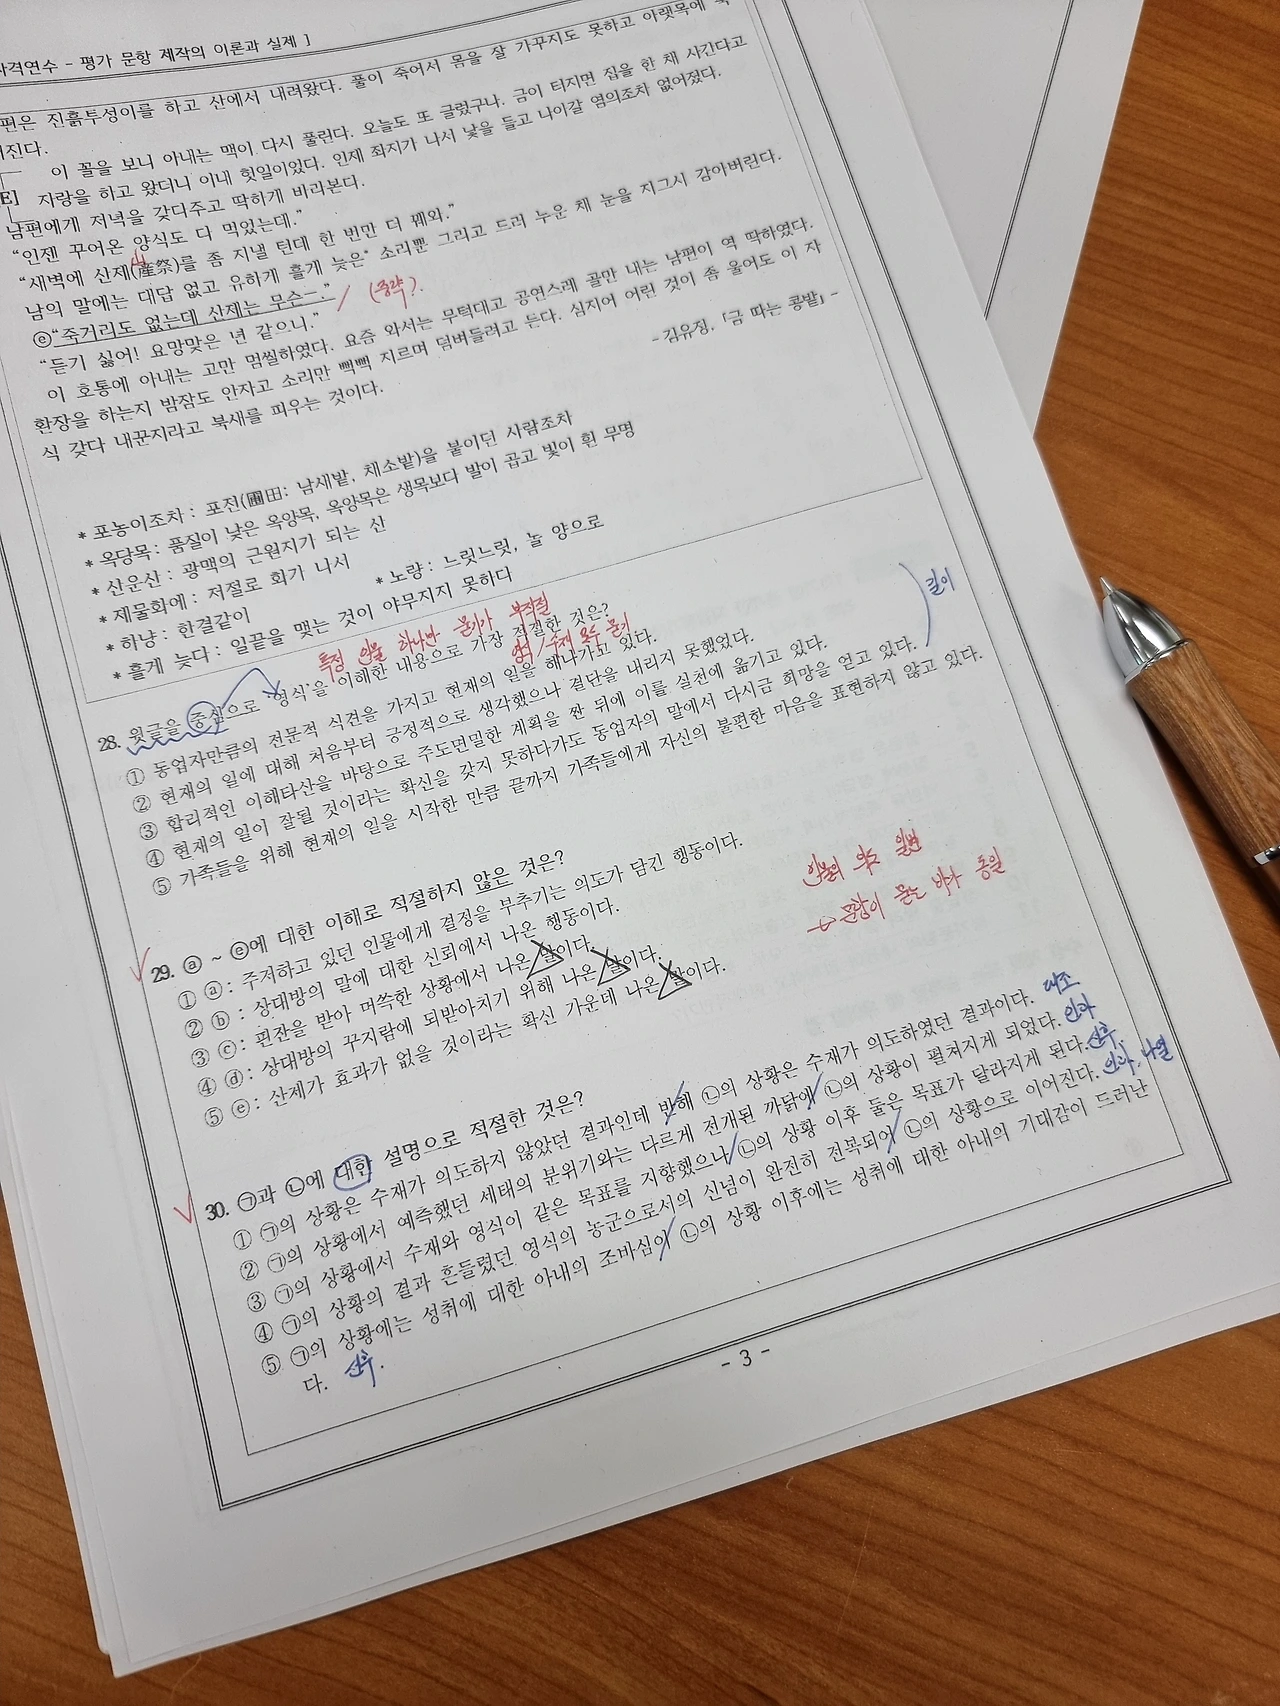 자격연수 - 평가 문항 제작의 이론과 실제 ]
편은 진흙투성이를 하고 산에서 내려왔다. 풀이 죽어서 몸을 잘 가꾸지도 못하고 아랫목에
진다.
이 꼴을 보니 아내는 맥이 다시 풀린다. 오늘도 또 글렀구나. 금이 터지면 집을 한 채 사간다고
E] 자랑을 하고 왔더니 이내 헛일이었다. 인제 좌지가 나서 낯을 들고 나아갈 염의조차 없어졌다.
남편에게 저녁을 갖다주고 딱하게 바라본다.
“인젠 꾸어온 양식도 다 먹었는데.”
“새벽에 산제(産祭)를 좀 지낼 턴데 한 번만 더 꿰와.”
山
남의 말에는 대답 없고 유하게 흘게 늦은* 소리뿐 그리고 드러 누운 채 눈을 지그시 감아버린다.
ⓔ“죽거리도 없는데 산제는 무슨─.” (중략?)
“듣기 싫어! 요망맞은 년 같으니.”
이 호통에 아내는 고만 멈씰하였다. 요즘 와서는 무턱대고 공연스레 골만 내는 남편이 역 딱하였다.
환장을 하는지 밤잠도 안자고 소리만 빽빽 지르며 덤벼들려고 든다. 심지어 어린 것이 좀 울어도 이 자
식 갖다 내꾼지라고 북새를 피우는 것이다.
- 김유정, 「금 따는 콩밭」 -
* 포농이조차 : 포전(圃田: 남새밭, 채소밭)을 붙이던 사람조차
* 옥당목 : 품질이 낮은 옥양목, 옥양목은 생목보다 발이 곱고 빛이 흰 무명
* 산운산 : 광맥의 근원지가 되는 산
* 제물화에 : 저절로 화가 나서
* 하냥 : 한결같이 * 노량 : 느릿느릿, 놀 양으로
* 흘게 늦다 : 일끝을 맺는 것이 야무지지 못하다
특정 인물 하나만 묻기가 부적절
영식/수재 모두 묻기
28. 윗글을 중심으로 ‘영식’을 이해한 내용으로 가장 적절한 것은?
① 동업자만큼의 전문적 식견을 가지고 현재의 일을 해나가고 있다.
② 현재의 일에 대해 처음부터 긍정적으로 생각했으나 결단을 내리지 못했었다.
③ 합리적인 이해타산을 바탕으로 주도면밀한 계획을 짠 뒤에 이를 실천에 옮기고 있다.
④ 현재의 일이 잘될 것이라는 확신을 갖지 못하다가도 동업자의 말에서 다시금 희망을 얻고 있다.
⑤ 가족들을 위해 현재의 일을 시작한 만큼 끝까지 가족들에게 자신의 불편한 마음을 표현하지 않고 있다.
길이
29. ⓐ ~ ⓔ에 대한 이해로 적절하지 않은 것은?
① ⓐ : 주저하고 있던 인물에게 결정을 부추기는 의도가 담긴 행동이다.
② ⓑ : 상대방의 말에 대한 신뢰에서 나온 행동이다.
③ ⓒ : 핀잔을 받아 머쓱한 상황에서 나온 말이다.
④ ⓓ : 상대방의 꾸지람에 되받아치기 위해 나온 말이다.
⑤ ⓔ : 산제가 효과가 없을 것이라는 확신 가운데 나온 말이다.
인물의 의도 일변
→ 문항이 묻는 바가 동일
30. ㉠과 ㉡에 대한 설명으로 적절한 것은?
① ㉠의 상황은 수재가 의도하지 않았던 결과인데 반해 ㉡의 상황은 수재가 의도하였던 결과이다. 대조
② ㉠의 상황에서 예측했던 세태의 분위기와는 다르게 전개된 까닭에 ㉡의 상황이 펼쳐지게 되었다. 인과
③ ㉠의 상황에서 수재와 영식이 같은 목표를 지향했으나 ㉡의 상황 이후 둘은 목표가 달라지게 된다. 선후
④ ㉠의 상황의 결과 흔들렸던 영식의 농군으로서의 신념이 완전히 전복되어 ㉡의 상황으로 이어진다. 인과, 나열
⑤ ㉠의 상황에는 성취에 대한 아내의 조바심이 ㉡의 상황 이후에는 성취에 대한 아내의 기대감이 드러난
다. 선후.
- 3 -